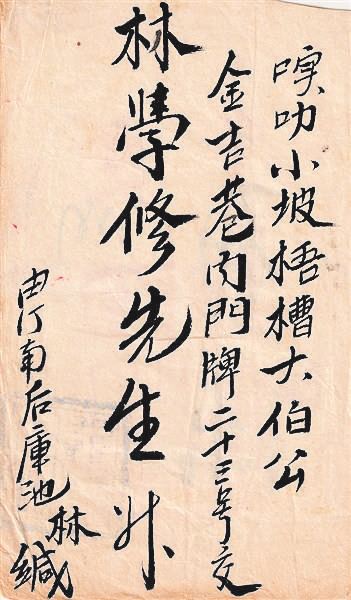 叻小坡梧槽大伯公
金吉巷内門牌二十三号交
林學修先生
由汀南后庫池林緘